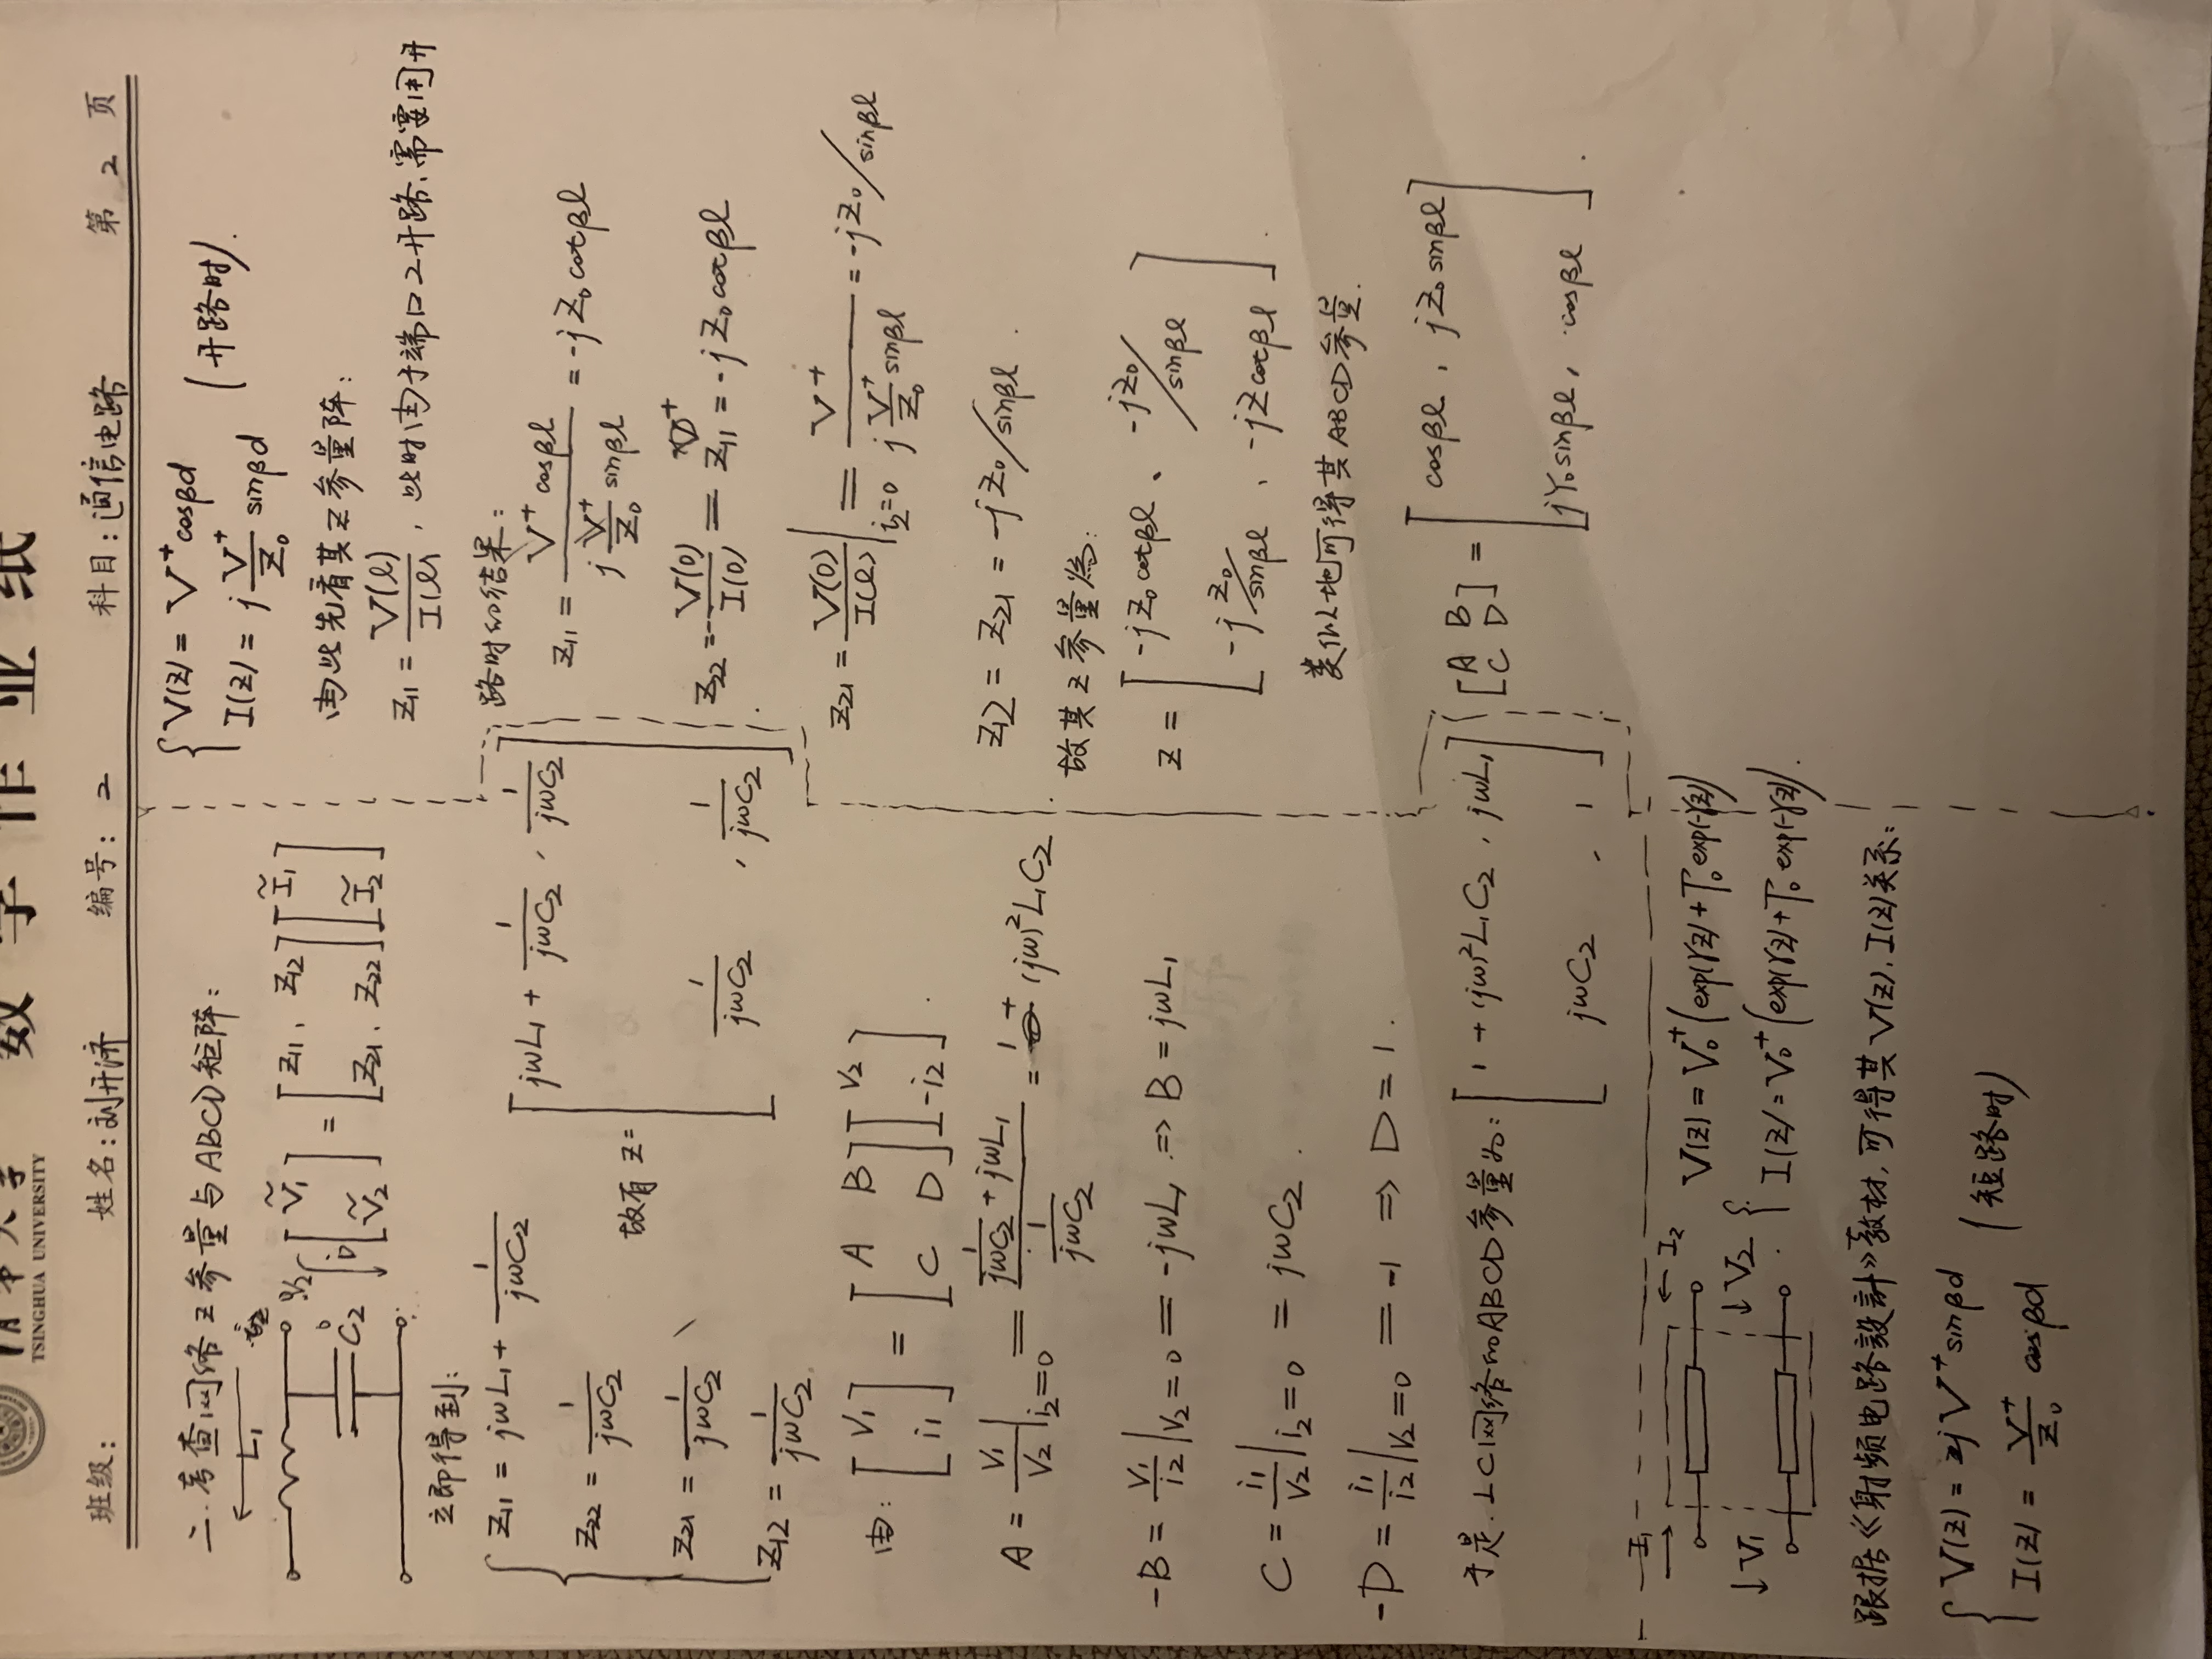 清华大学
TSINGHUA UNIVERSITY
数学作业纸
班级: 姓名: 刘开济 编号: 2 科目: 通信电路 第 2 页
二. 考查网络Z参量与ABCD矩阵:
L₁
C₂
[Ṽ₁; Ṽ₂] = [Z₁₁, Z₁₂; Z₂₁, Z₂₂] [Ĩ₁; Ĩ₂]
立即得到:
Z₁₁ = jωL₁ + 1/(jωC₂)
Z₂₂ = 1/(jωC₂)
Z₂₁ = 1/(jωC₂)
Z₁₂ = 1/(jωC₂)
故有 Z = [jωL₁ + 1/(jωC₂), 1/(jωC₂); 1/(jωC₂), 1/(jωC₂)]
由: [V₁; i₁] = [A B; C D] [V₂; -i₂].
A = V₁/V₂ |i₂=0 = (1/(jωC₂) + jωL₁)/(1/(jωC₂)) = 1 + (jω)²L₁C₂
-B = V₁/i₂ |V₂=0 = -jωL₁ ⇒ B = jωL₁
C = i₁/V₂ |i₂=0 = jωC₂.
-D = i₁/i₂ |V₂=0 = -1 ⇒ D = 1.
于是. LC网络的ABCD参量为: [1 + (jω)²L₁C₂, jωL₁; jωC₂, 1]
I₁ I₂
V₁ V₂
V(z) = V₀⁺(exp(γz) + Γ₀ exp(-γz))
I(z) = V₀⁺(exp(γz) + Γ₀ exp(-γz)).
跟据《射频电路設計》教材, 可得其V(z). I(z)关系:
V(z) = 2jV⁺sinβd
I(z) = V⁺/Z₀ cosβd
(短路时)
V(z) = V⁺cosβd
I(z) = j V⁺/Z₀ sinβd
(开路时).
由此先看其Z参量阵:
Z₁₁ = V(l)/I(l), 此时由于端口2开路, 需要用开
路时的结果:
Z₁₁ = V⁺cosβl / (j V⁺/Z₀ sinβl) = -jZ₀cotβl
Z₂₂ = -V(0)/I(0) = Z₁₁ = -jZ₀cotβl
Z₂₁ = V(0)/I(l) |i₂=0 = V⁺/(j V⁺/Z₀ sinβl) = -jZ₀/sinβl
Z₁₂ = Z₂₁ = -jZ₀/sinβl.
故其Z参量为:
Z = [-jZ₀cotβl, -jZ₀/sinβl; -jZ₀/sinβl, -jZcotβl].
类似地可得其ABCD参量.
[A B; C D] = [cosβl, jZ₀sinβl; jY₀sinβl, cosβl].